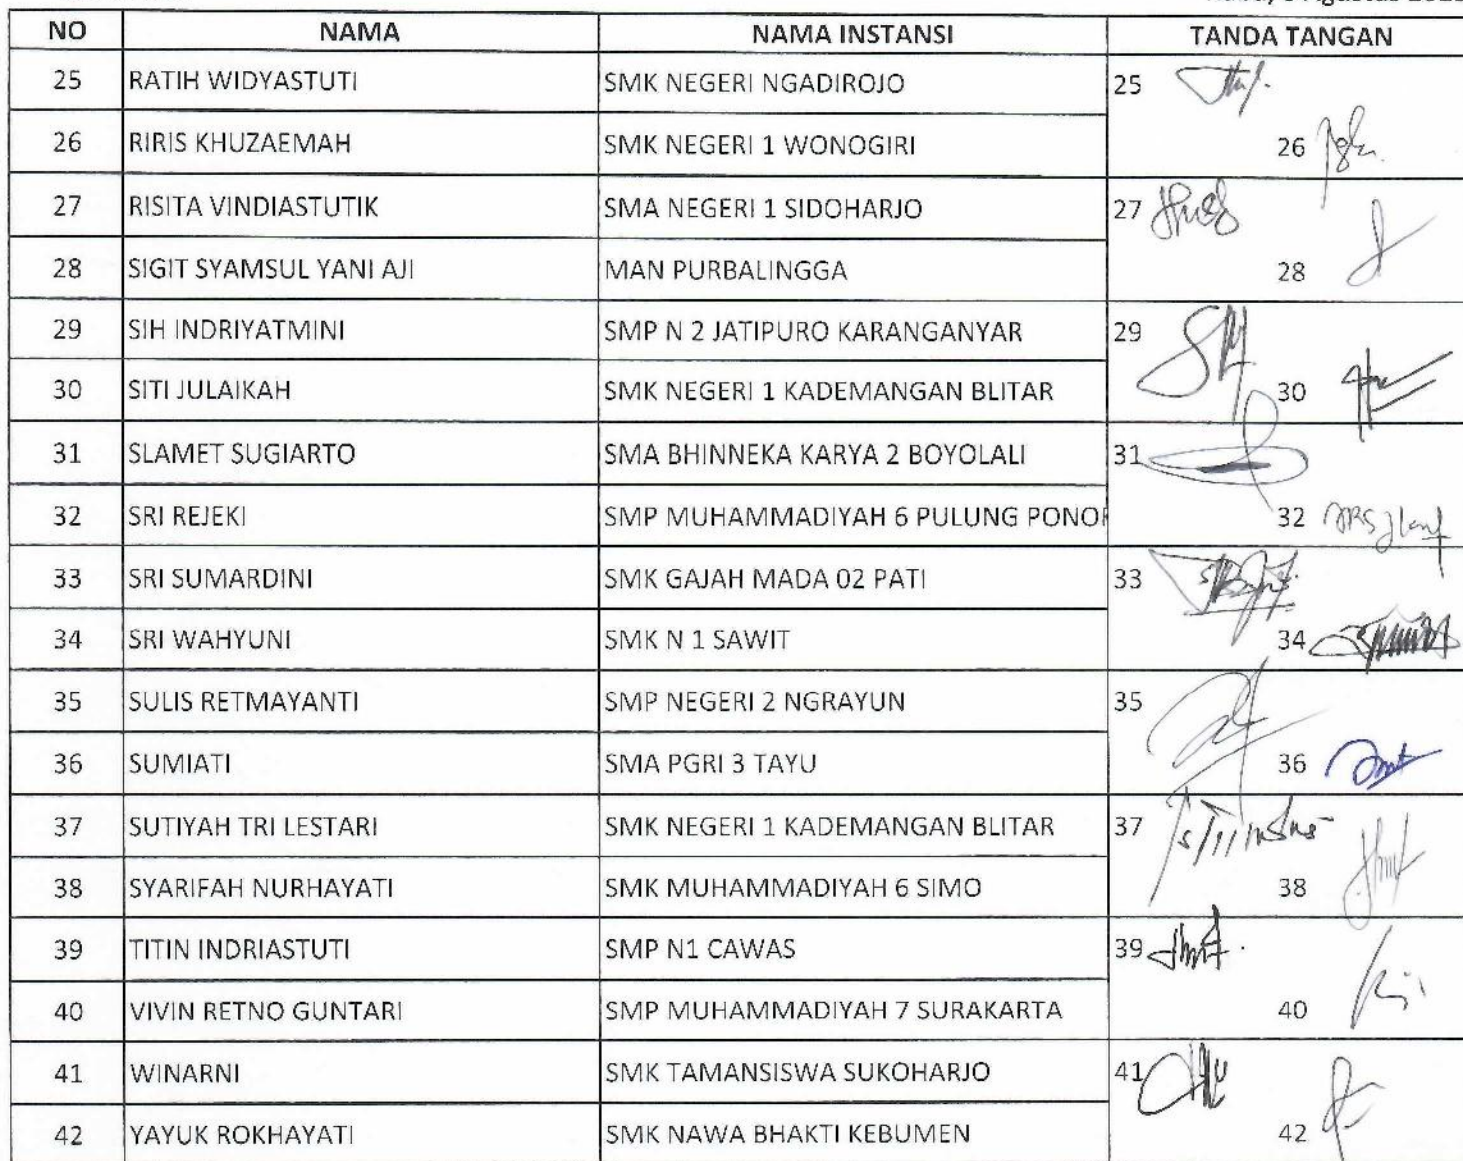 Agustus
NO NAMA NAMA INSTANSI TANDA TANGAN
25 RATIH WIDYASTUTI SMK NEGERI NGADIROJO 25
26 RIRIS KHUZAEMAH SMK NEGERI 1 WONOGIRI 26
27 RISITA VINDIASTUTIK SMA NEGERI 1 SIDOHARJO 27
28 SIGIT SYAMSUL YANI AJI MAN PURBALINGGA 28
29 SIH INDRIYATMINI SMP N 2 JATIPURO KARANGANYAR 29
30 SITI JULAIKAH SMK NEGERI 1 KADEMANGAN BLITAR 30
31 SLAMET SUGIARTO SMA BHINNEKA KARYA 2 BOYOLALI 31
32 SRI REJEKI SMP MUHAMMADIYAH 6 PULUNG PONOR 32
33 SRI SUMARDINI SMK GAJAH MADA 02 PATI 33
34 SRI WAHYUNI SMK N 1 SAWIT 34
35 SULIS RETMAYANTI SMP NEGERI 2 NGRAYUN 35
36 SUMIATI SMA PGRI 3 TAYU 36
37 SUTIYAH TRI LESTARI SMK NEGERI 1 KADEMANGAN BLITAR 37
38 SYARIFAH NURHAYATI SMK MUHAMMADIYAH 6 SIMO 38
39 TITIN INDRIASTUTI SMP N1 CAWAS 39
40 VIVIN RETNO GUNTARI SMP MUHAMMADIYAH 7 SURAKARTA 40
41 WINARNI SMK TAMANSISWA SUKOHARJO 41
42 YAYUK ROKHAYATI SMK NAWA BHAKTI KEBUMEN 42